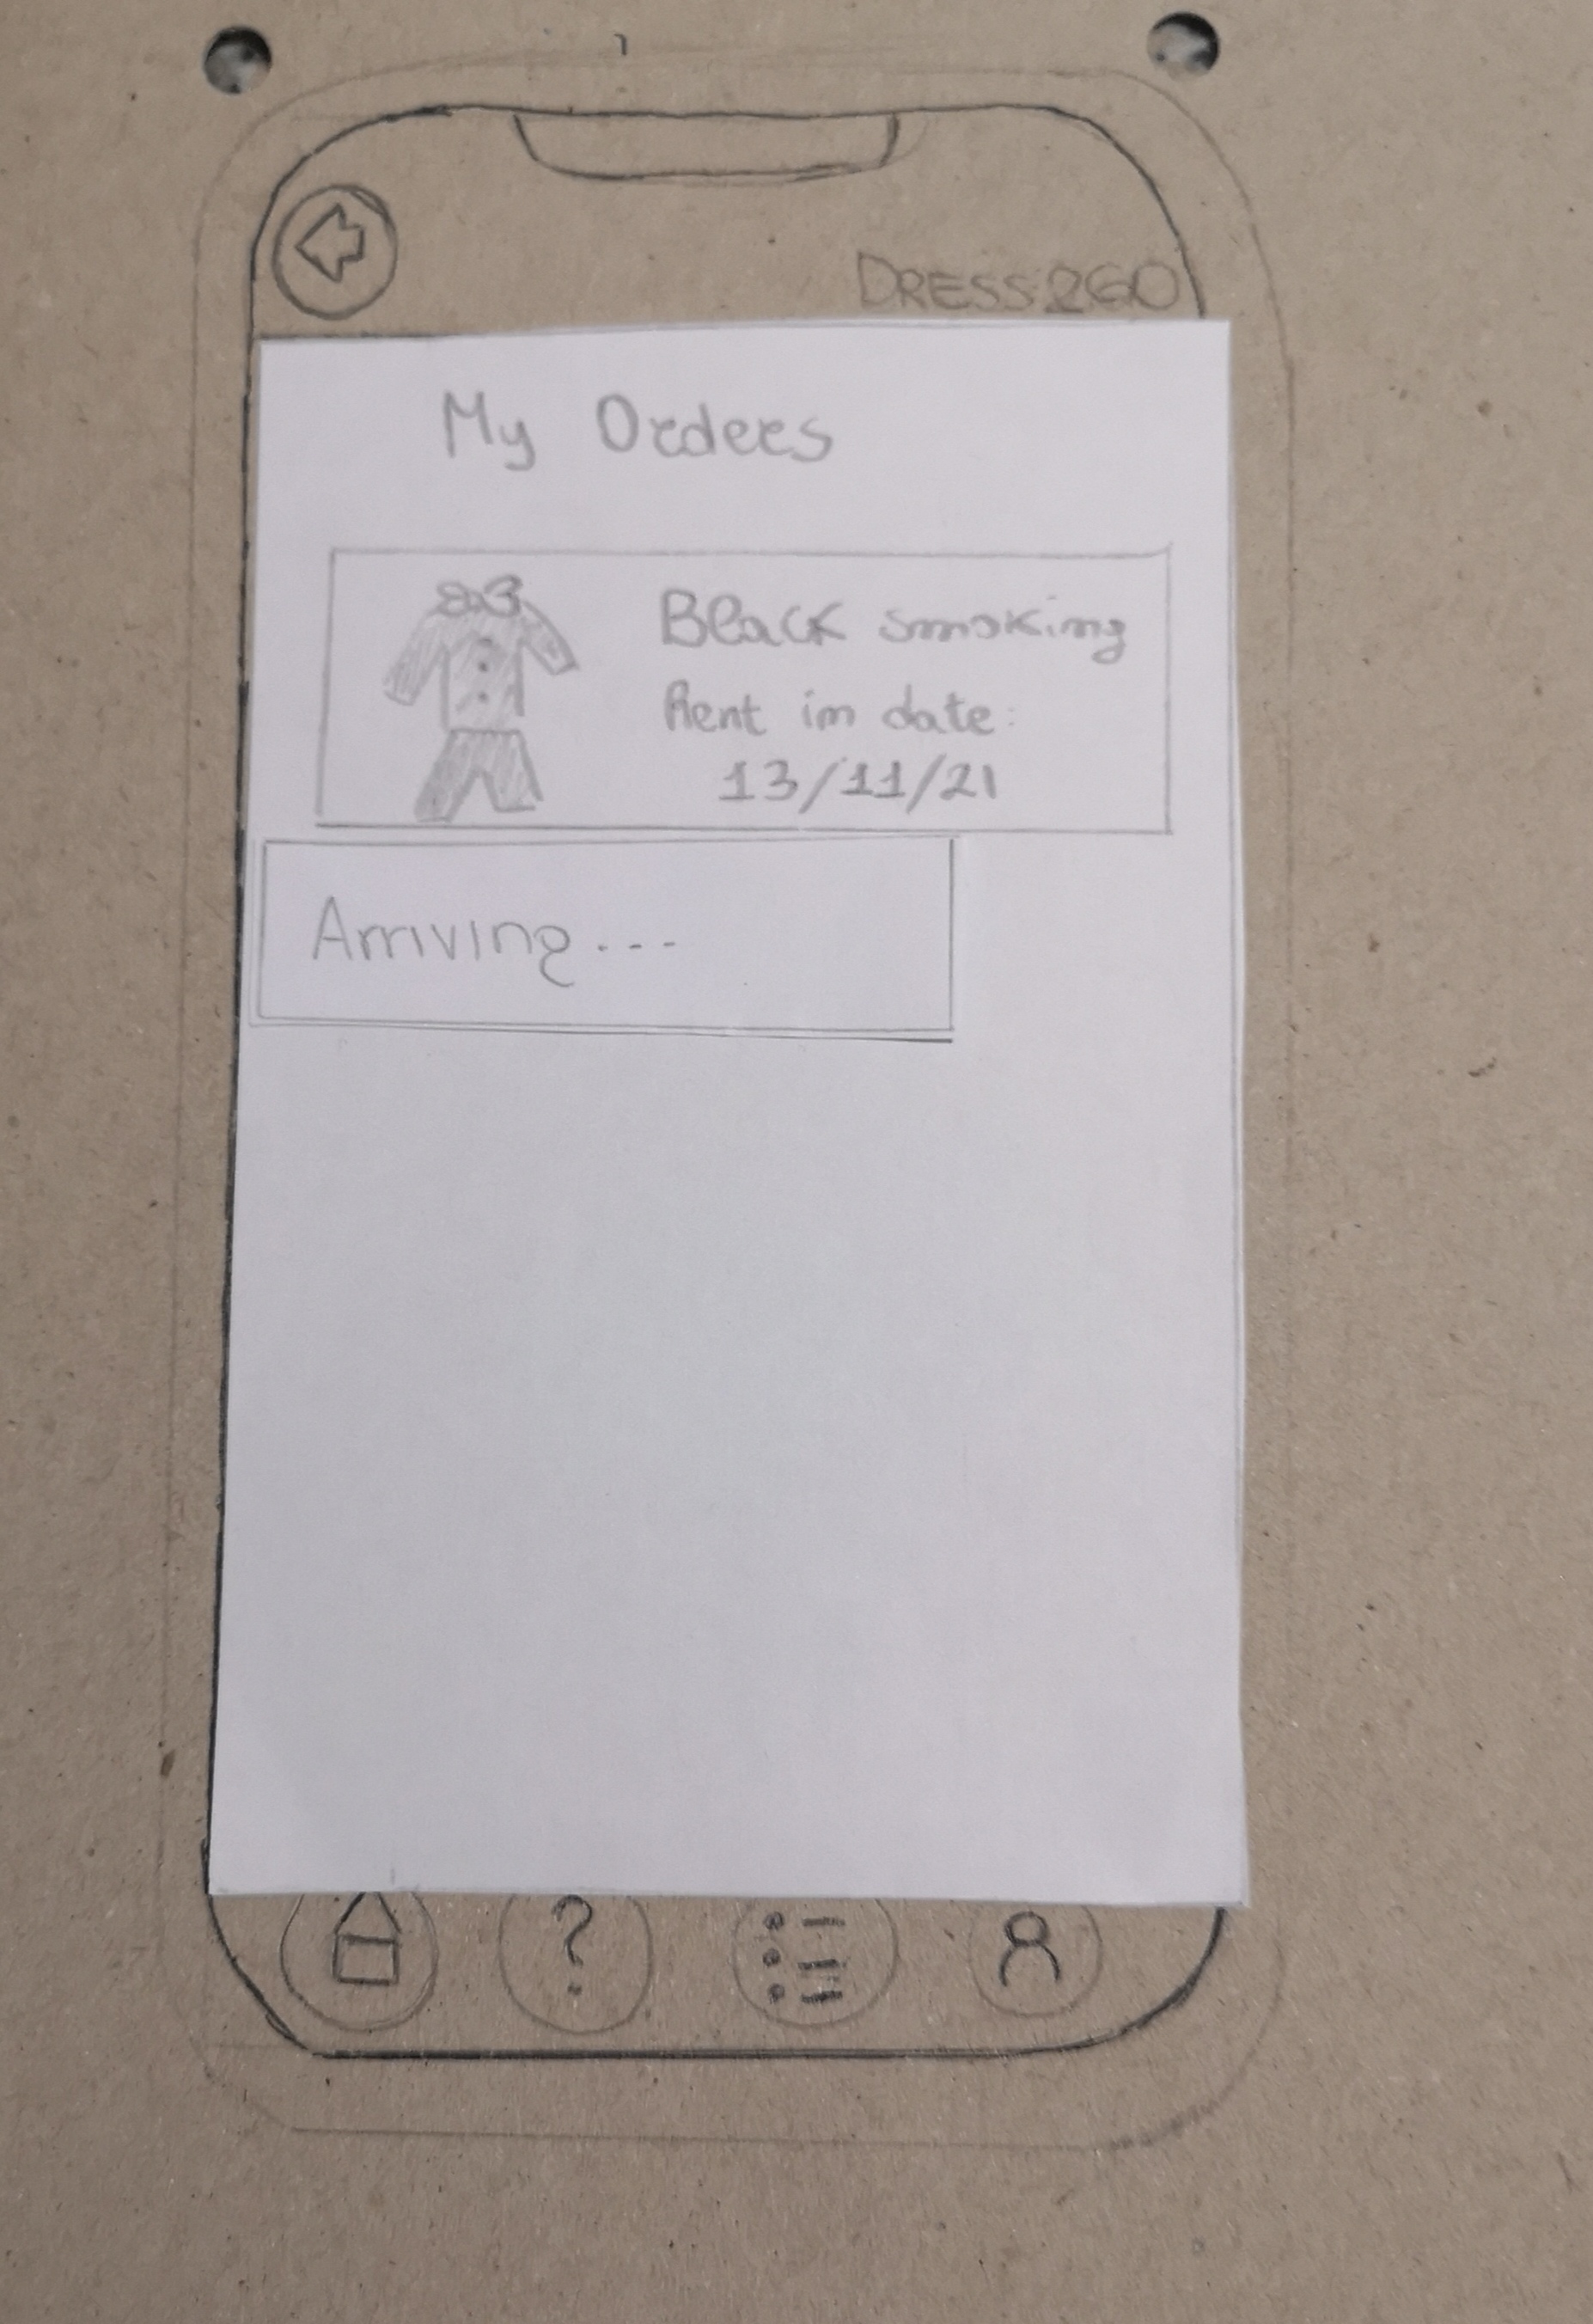 DRESS2GO
My Orders
Black smoking
Rent in date:
13/11/21
Arriving...
?